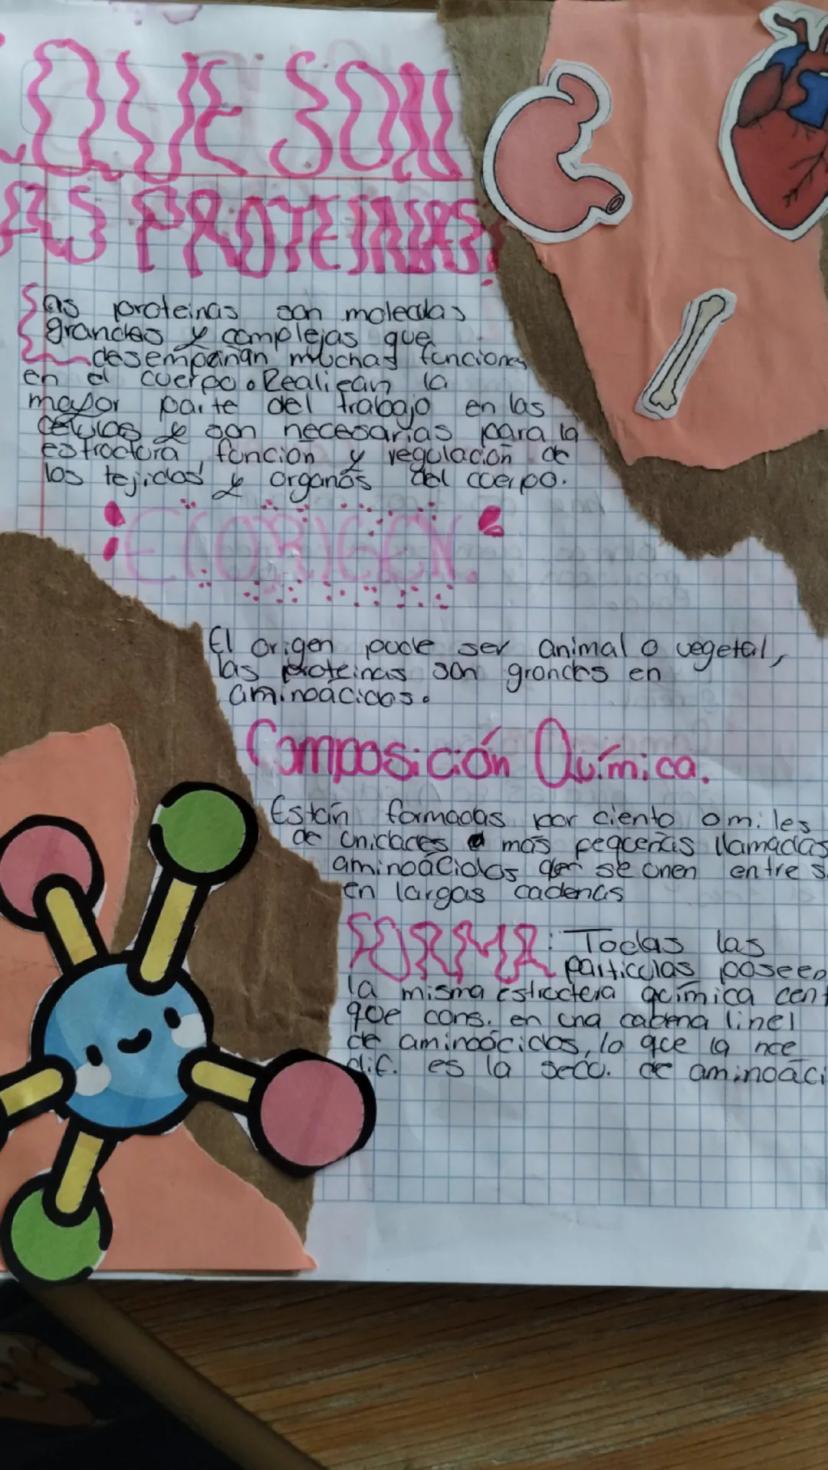 ¿QUE SON
LAS PROTEINAS?
Las proteinas son moleculas
grandes y complejas que
desempañan muchas funciones
en el cuerpo. Realizan la
mayor parte del trabajo en las
células y son necesarias para la
estructura funcion y regulación de
los tejidos y organos del cuerpo.
El ORIGEN.
El origen puede ser animal o vegetal,
las proteinas son grandes en
aminoácidos.
Composición Química.
Están formadas por ciento o miles
de unidades mas pequeñas llamadas
aminoácidos que se unen entre s
en largas cadenas
FORMA: Todas las
particulas poseen
la misma estructura química cent
que cons. en una cadena linel
de aminoácidos, lo que la hce
dif. es la secc. de aminoáci